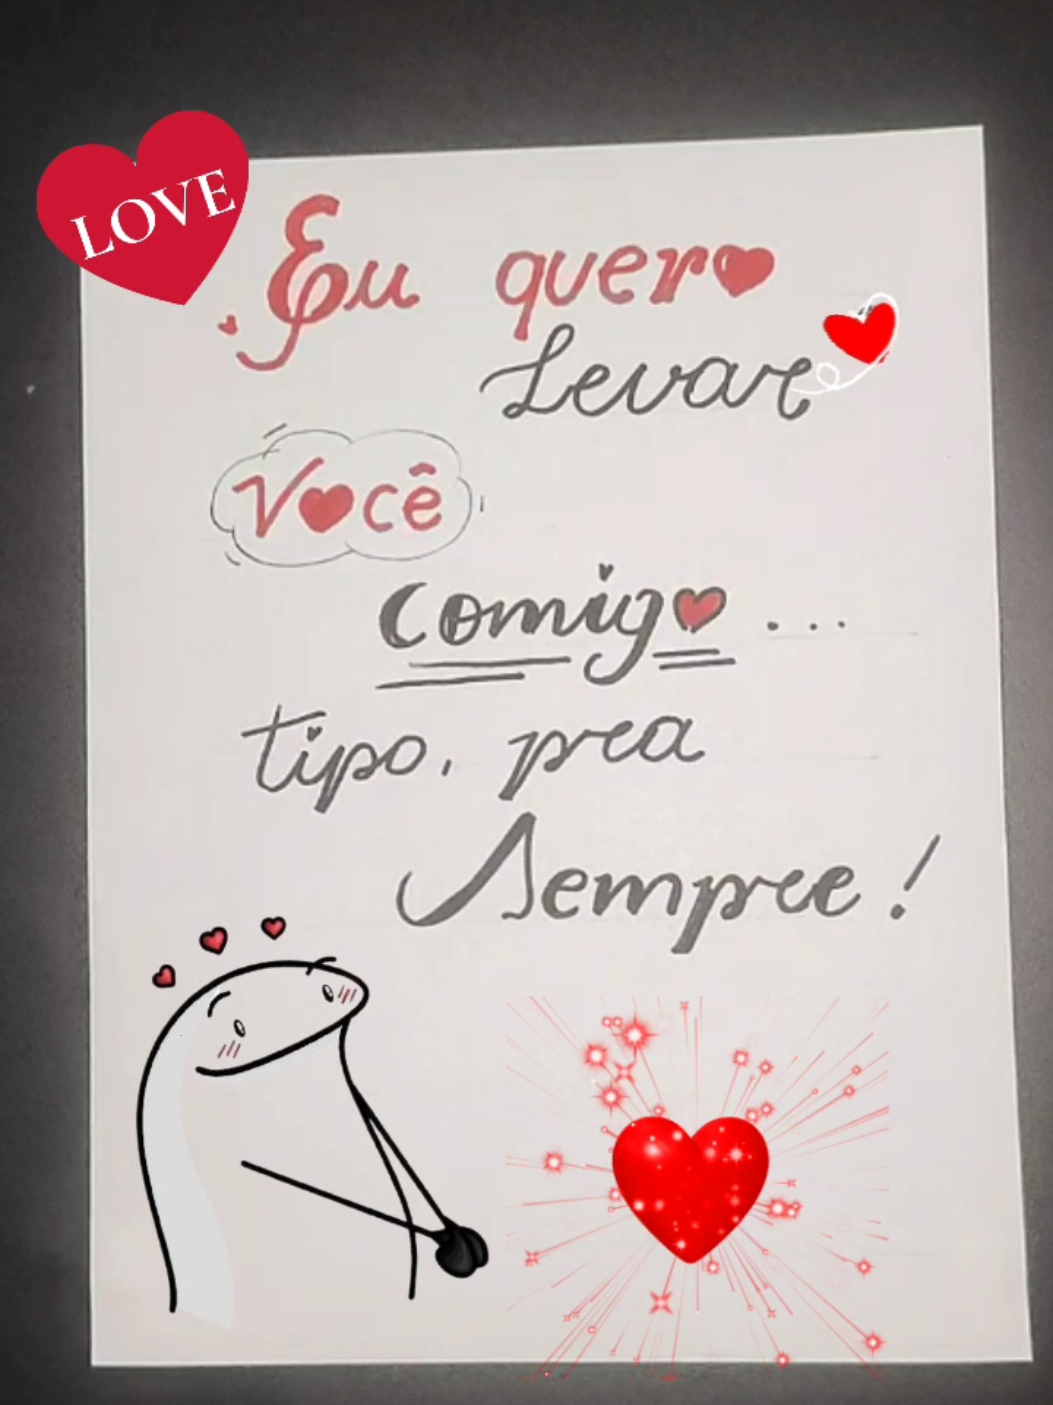 LOVE
Eu quero
Levar
Você
comigo...
tipo, pra
Sempre!